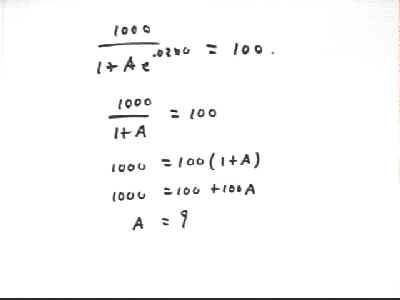 1000 / 1 + A e^.02·0 = 100.
1000 / 1+A = 100
1000 = 100(1+A)
1000 = 100 + 100A
A = 9